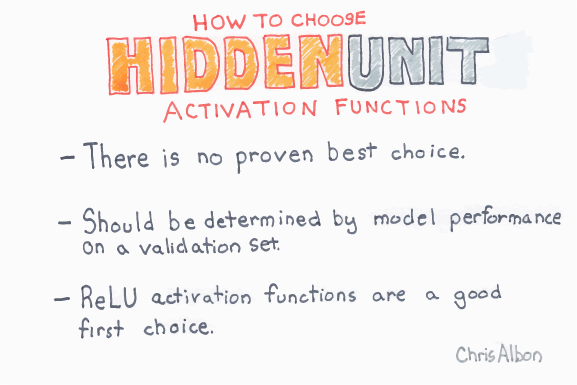 HOW TO CHOOSE
HIDDEN UNIT
ACTIVATION FUNCTIONS
- There is no proven best choice.
- Should be determined by model performance
on a validation set.
- ReLU activation functions are a good
first choice.
Chris Albon